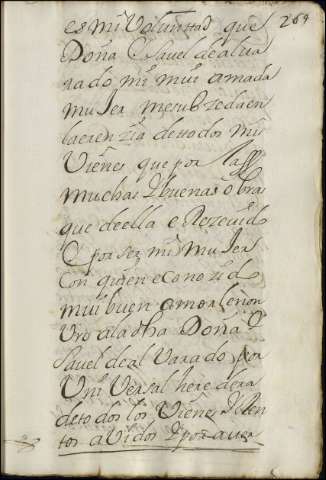 269
es mi Voluntad que
Doña Ysavel de alva
rado mi mui amada
muJer me subzeda en
la eren zia de ttodos mis
Vienes que por las
muchas Y buenas obras
que de ella e Rezevido
Y por ser mi muJer
Con quien e conozido
mui buen amor le non
vro a la dha Doña Y
savel de al Varado por
Uni Versal here dera
de to dos los Vienes
tos a Vidos Y por aver